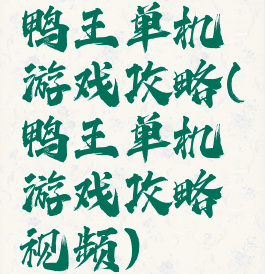 鸭王单机
游戏攻略(
鸭王单机
游戏攻略
视频)